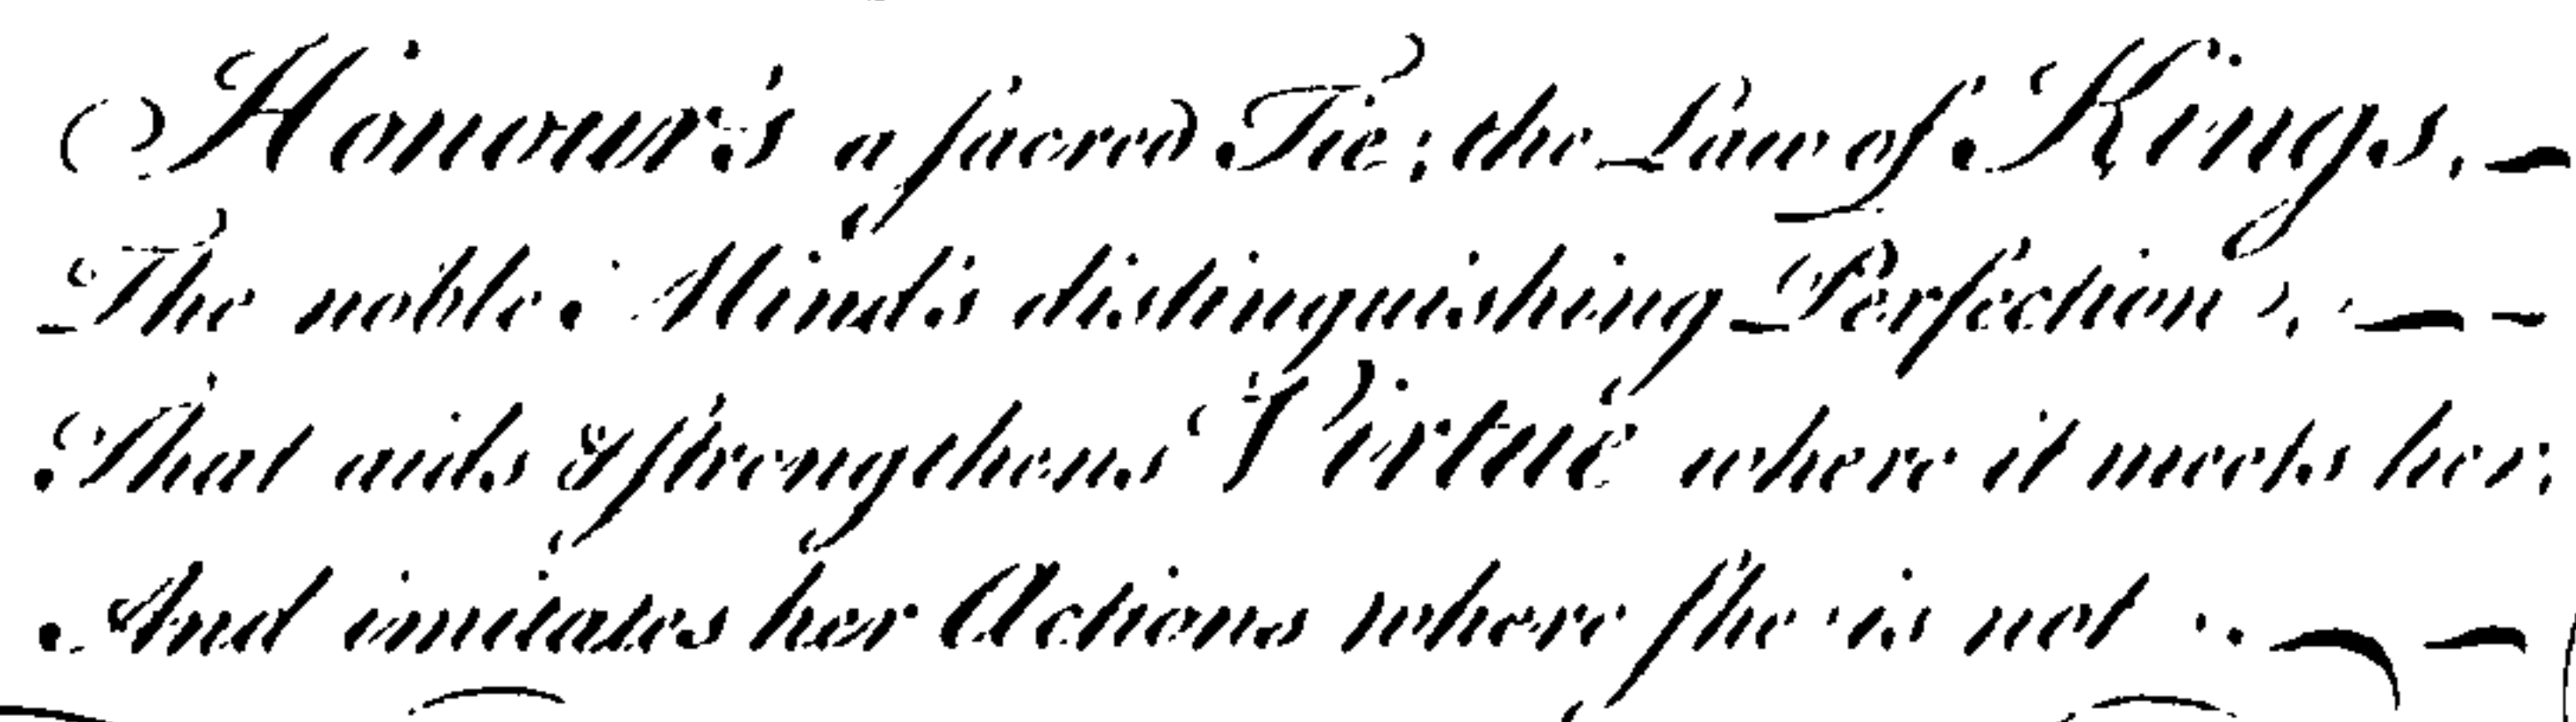 Honour's a sacred Tie; the Law of Kings,
The noble Mind's distinguishing Perfection,
That aids & strengthens Virtue where it meets her,
And imitates her Actions where she is not.